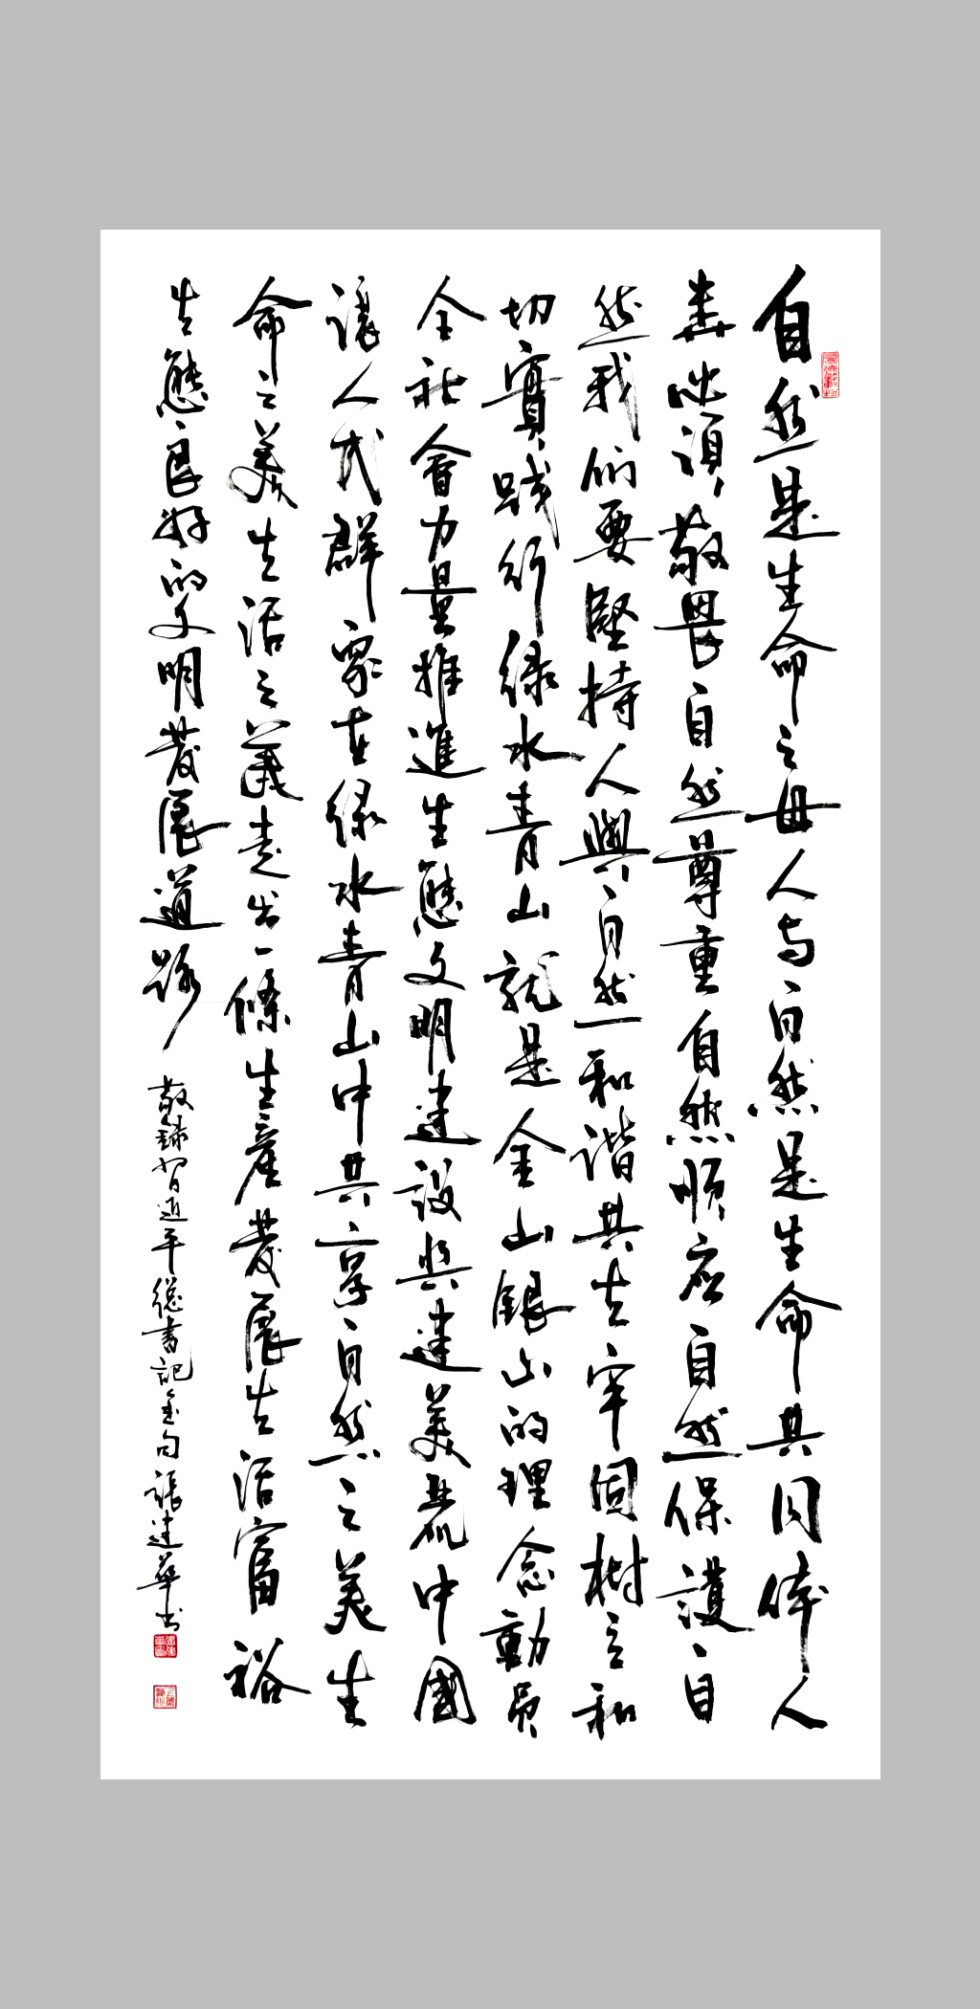 自然是生命之母人与自然是生命共同体人
类必須敬畏自然尊重自然順应自然保護自
然我们要堅持人與自然和谐共生牢固树立和
切實踐行绿水青山就是金山銀山的理念動员
全社會力量推進生態文明建設共建美麗中國
讓人民群眾在绿水青山中共享自然之美生
命之美生活之美走出一條生產發展生活富裕
生態良好的文明發展道路
敬録習近平總書記金句張建華书